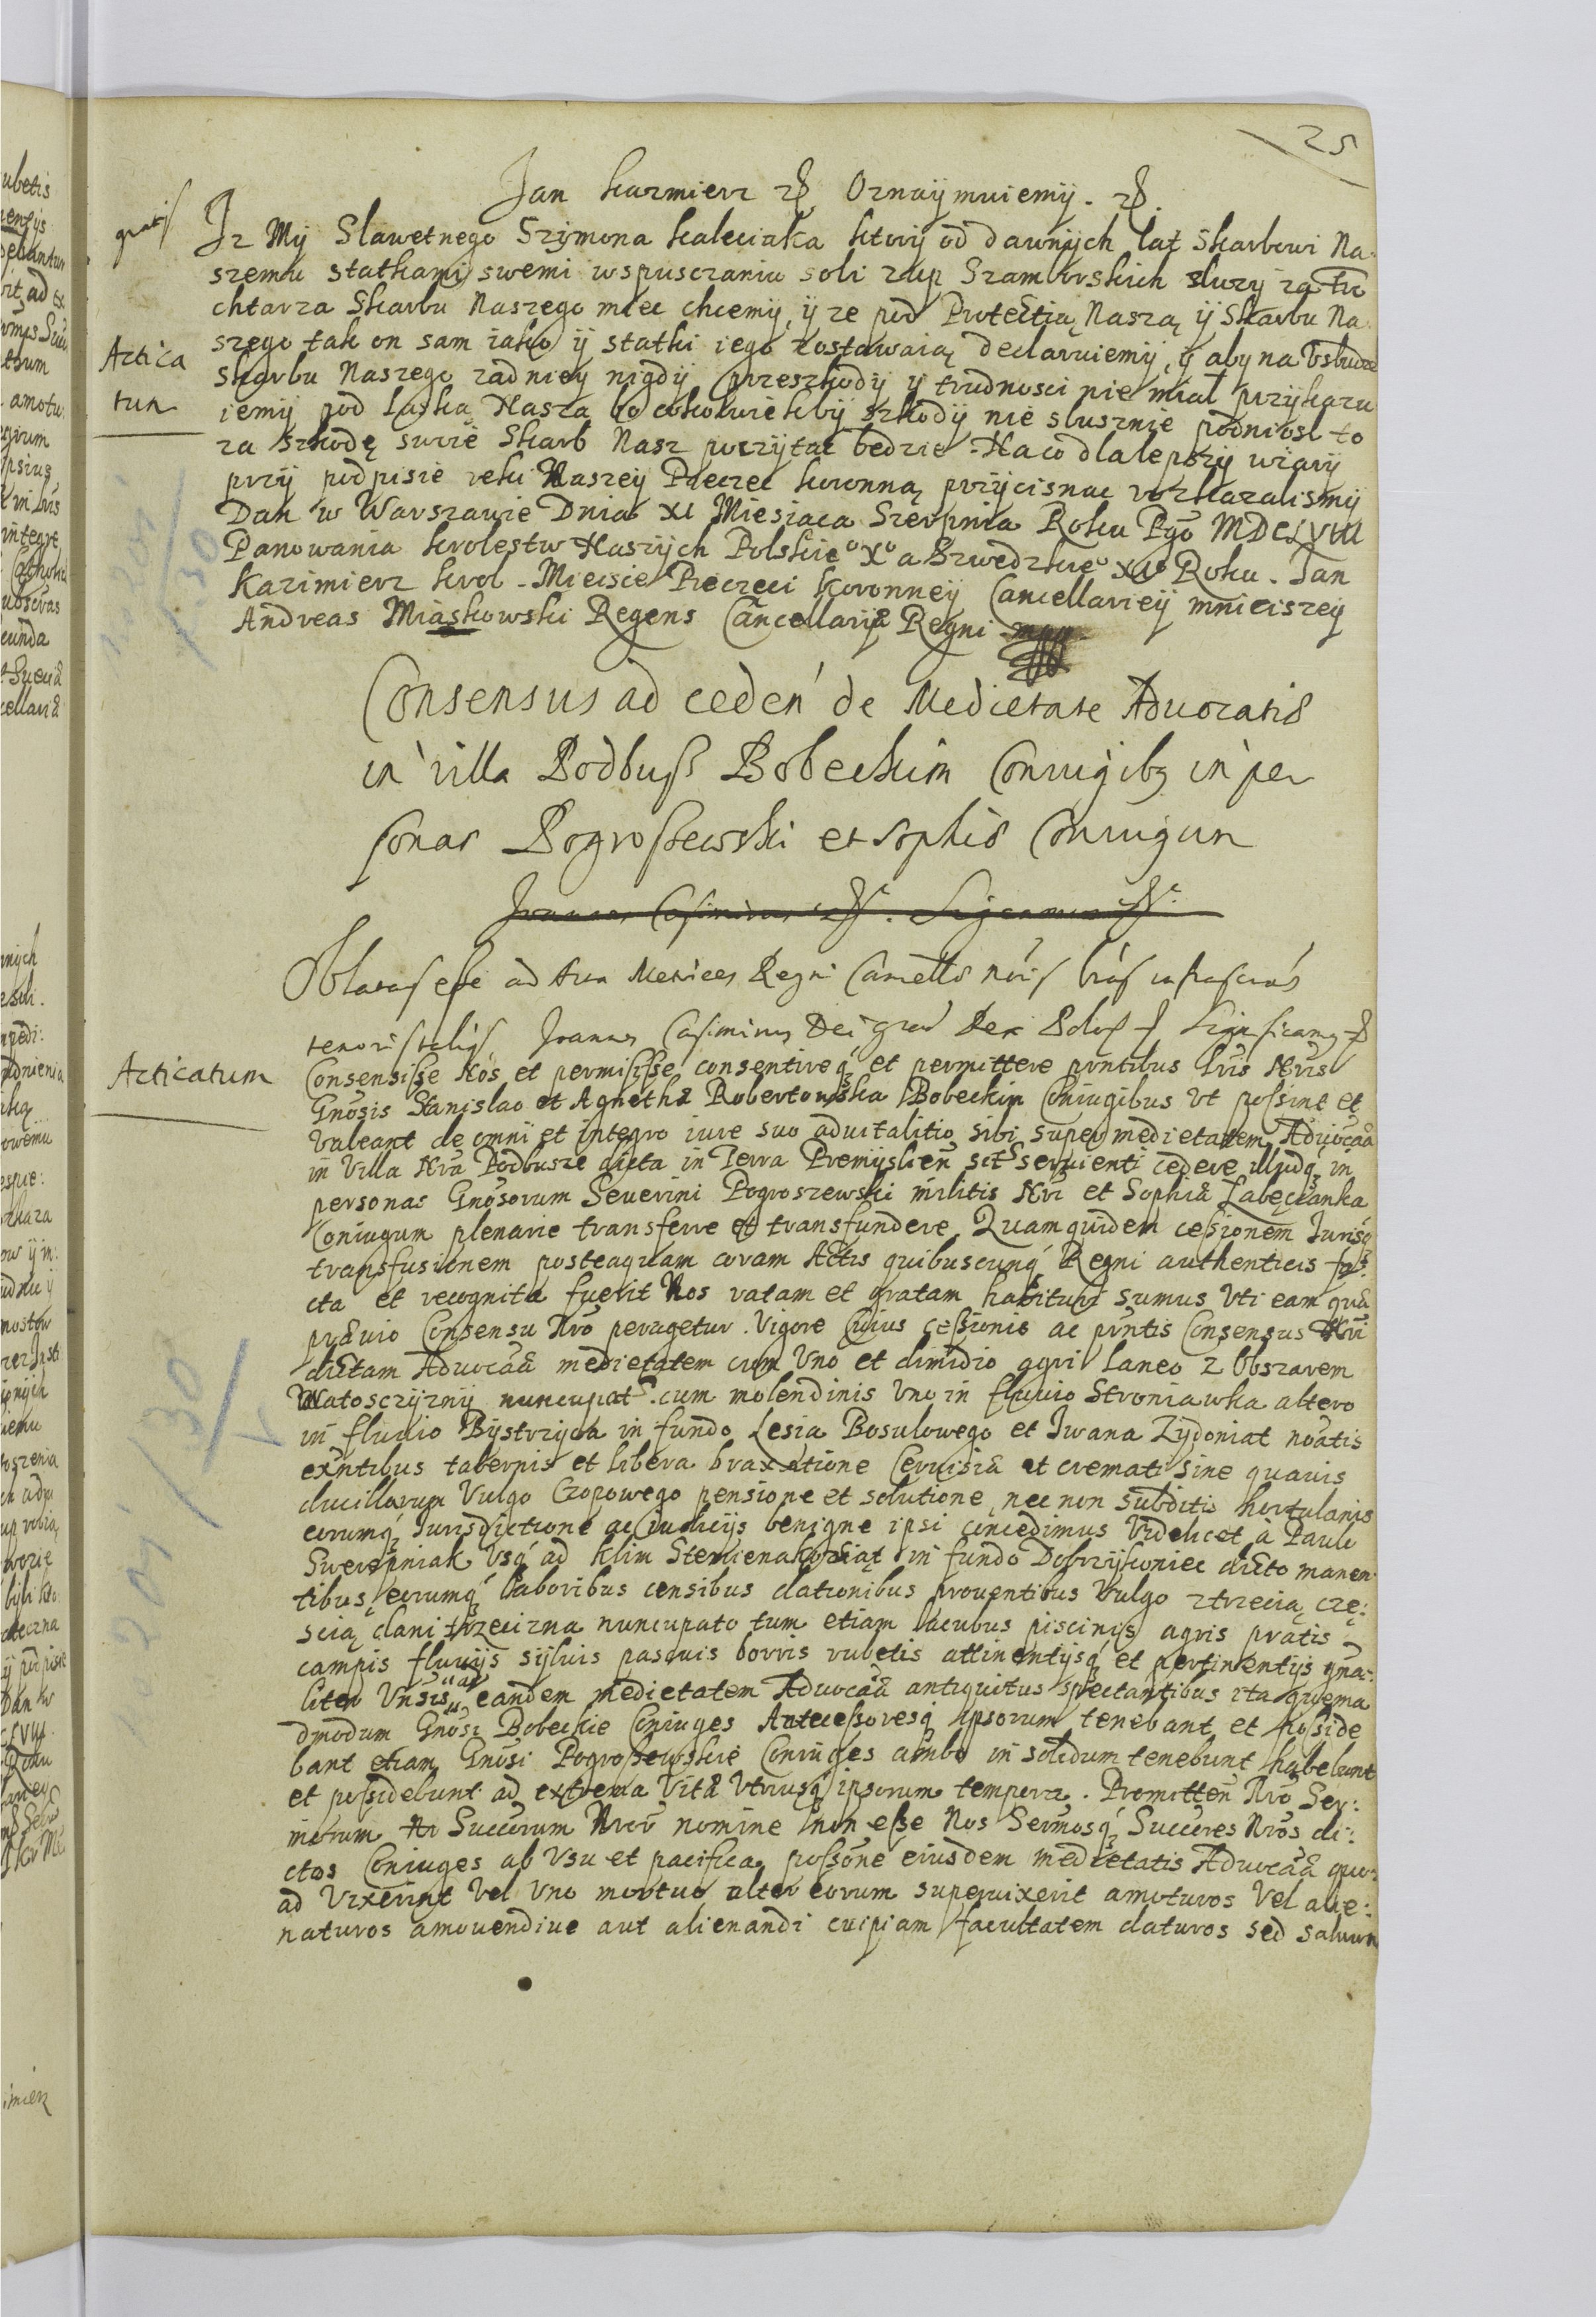 25
Jan Kazmierz etc. Oznaijmuiemij. etc.
gratis
Iz Mij Slawetnego Szijmona Kaleciaka ktorij od dawnijch lat Skarbowi Na
szemu statkami swemi w spusczaniu soli zup Szamborskich sluzij za Fro
chtarza Skarbu Naszego miec chcemij, ij ze pod Protectią Naszą ij Skarbu Na
szego tak on sam iako ij statki iego zostawaią declaruiemij, ij aby na Vsludze
Actica
tum
Skarbu Naszego zadnieij nigdij przeszkodij ij trudnosci nie mial przijkazu
iemij pod Laską Naszą bo cokolwiekbij szkodij nie slusznie podniosl to
za szkodę swoie Skarb Nasz poczijtac bedzie. Na co dla lepszij wiarij
przij podpisie reki Naszeij Pieczec koronną przijcisnac rozkazalismij
Dan w Warszawie Dnia XI Miesiaca Sierpnia Roku Pgo MDCLVIII
Panowania krolestw Naszijch Polskieo Xo a Szwedzkieo XIo Roku. Jan
Kazimierz Krol. Mieisce Pieczeci koronneij Cancellarieij mnieiszeij
Andreas Miaskowski Regens Cancellariæ Regni mpp
Consensus ad ceden de Medietate Aduocatis
in villa Podbusz Bobeckim Coniugibq in per
sonas Pogroszewski et Sophiæ Coniugum
Joannes Casimirus etc. Significamus etc.
Oblatas esse ad Acta Metrices Regni Cancellæ nris lras infrascrias
tenoris talis Joannes Casimirus Dei gra Rex Polos etc Significamus etc
Acticatum
Consensisse Nos et permisisse consentireq et permittere pntibus lris Nris
Gnosis Stanislao et Agnethæ Robertowska Bobeckim Coniugibus vt possint et
valeant de omni et integro iure suo aduitalitio sibi super medietatem Aduocaa
in Villa Nra Podbusze dicta in Terra Premijslien sit seruienti cedere illudq in
personas Gnosorum Seuerini Pogroszewski militis Nri et Sophiæ Łabęckanka
Coniugum plenarie transferre et transfundere. Quam quidem cessionem Iurisq
transfusionem posteaquam coram Actis quibuscunq Regni authenticis fa:
cta et recognita fuerit Nos ratam et gratam habituri sumus vti eam quæ
præuio Consensu Nro peragetur. Vigore Cuius cessionis ac pntis Consensus Nri
dictam Aduocaa medietatem cum Vno et dimidio agri Laneo z Obszarem
Watosczijznij nuncupat. cum molendinis Vno in fluuio Stroniawka altero
in fluuio Bijstrzijca in fundo Lesia Bosulowego et Iwana Zijdoniat noatis
exntibus tabernis et libera braxatione Ceruisiæ et cremati sine quauis
ducillarum Vulgo Czopowego pensione et solutione, nec non subditis hortulanis
eorumq Iurisdictione ac iudicijs benigne ipsi concedimus Videlicet à Paulo
Swerepniak Vsq ad Klim in fundo Dobrzijkoniec dicto manen
tibus, eorumq laboribus censibus dationibus prouentibus Vulgo ztrzecią czę:
scią dani trzecizna nuncupato tum etiam lacubus piscinis agris pratis
campis fluuijs sijluis pascuis borris rubetis attinentijsq et pertinentijs gna:
liter Vnsis ad eandem medietatem Aduocaa antiquitus spectantibus ita quema
dmodum Gnosi Bobeckie Coniuges Antecessoresq ipsorum tenebant et posside
bant etiam Gnosi Pogroszewskie Coniuges ambo in solidum tenebunt habebunt
et possidebunt ad extrema Vitæ Vtriusq ipsorum tempora. Promitten Nro Ser:
morum Successorum Nror nomine non esse Nos Sermosq Succres Nros di:
ctos Coniuges ab Vsu et pacifica possone eiusdem medietatis Aduocaa quo:
ad Vixerint Vel Vno mortuo alter eorum superuixerit amoturos Vel alie:
naturos amouendiue aut alienandi cuipiam facultatem daturos sed saluum